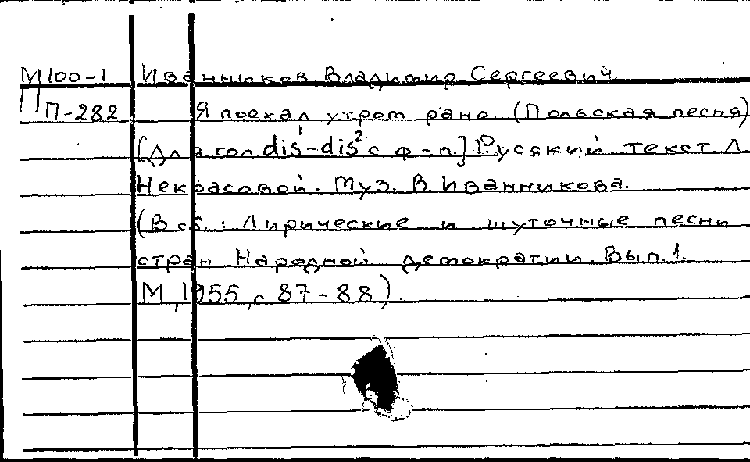 М100-1 Иванников Владимир Сергеевич
П-282 Я поехал утром рано. (Польская песня)
[Для гол. dis¹-dis² с ф-п.] Русский текст Л.
Некрасовой. Муз. В. Иванникова.
(В сб.: Лирические и шуточные песни
стран Народной демократии. Вып. 1.
М., 1955, с. 87-88).